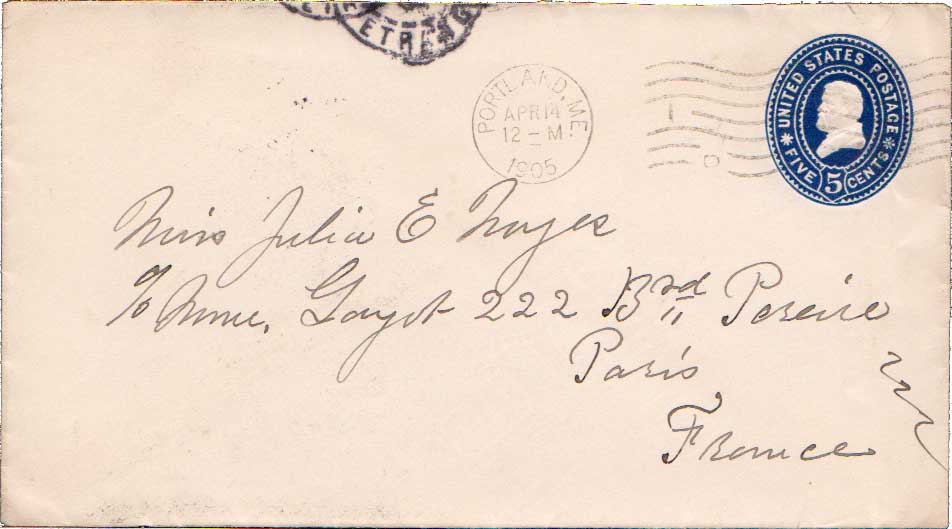 ETRANG
PORTLAND, ME.
APR 14
12-M
1905
UNITED STATES POSTAGE
FIVE 5 CENTS
Miss Julia E Noyes
c/o Mme. Gayot 222 Brd Pereire
Paris
France